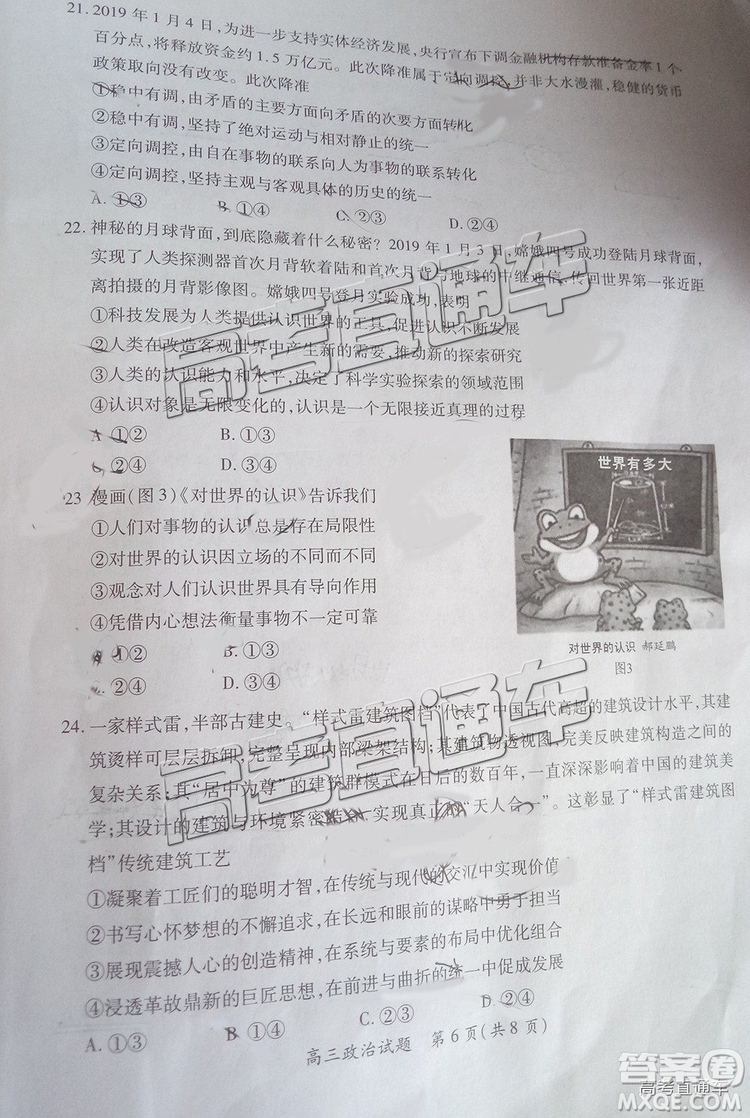 21. 2019 年 1 月 4 日，为进一步支持实体经济发展，央行宣布下调金融机构存款准备金率 1 个
百分点，将释放资金约 1.5 万亿元。此次降准属于定向调控，并非大水漫灌，稳健的货币
政策取向没有改变。此次降准
①稳中有调，由矛盾的主要方面向矛盾的次要方面转化
②稳中有调，坚持了绝对运动与相对静止的统一
③定向调控，由自在事物的联系向人为事物的联系转化
④定向调控，坚持主观与客观具体的历史的统一
A. ①③ B. ①④ C. ②③ D. ②④
22. 神秘的月球背面，到底隐藏着什么秘密？2019 年 1 月 3 日，嫦娥四号成功登陆月球背面，
实现了人类探测器首次月背软着陆和首次月背与地球的中继通信，传回世界第一张近距
离拍摄的月背影像图。嫦娥四号登月实验成功，表明
①科技发展为人类提供认识世界的工具，促进认识不断发展
②人类在改造客观世界中产生新的需要，推动新的探索研究
③人类的认识能力和水平，决定了科学实验探索的领域范围
④认识对象是无限变化的，认识是一个无限接近真理的过程
A. ①② B. ①③
C. ②④ D. ③④
23 漫画(图 3)《对世界的认识》告诉我们
①人们对事物的认识总是存在局限性
②对世界的认识因立场的不同而不同
③观念对人们认识世界具有导向作用
④凭借内心想法衡量事物不一定可靠
A. ①② B. ①③
C. ②④ D. ③④
世界有多大
对世界的认识 郝延鹏
图3
24. 一家样式雷，半部古建史。“样式雷建筑图档”代表了中国古代高超的建筑设计水平，其建
筑烫样可层层拆卸，完整呈现内部梁架结构；其建筑物透视图，完美反映建筑构造之间的
复杂关系；其“居中为尊”的建筑群模式在日后的数百年，一直深深影响着中国的建筑美
学；其设计的建筑与环境紧密结合，实现真正的“天人合一”。这彰显了“样式雷建筑图
档”传统建筑工艺
①凝聚着工匠们的聪明才智，在传统与现代的交汇中实现价值
②书写心怀梦想的不懈追求，在长远和眼前的谋略中勇于担当
③展现震撼人心的创造精神，在系统与要素的布局中优化组合
④浸透革故鼎新的巨匠思想，在前进与曲折的统一中不断发展
A. ①③ B. ①④ C. ②③ D. ②④
高三政治试题 第 6 页(共 8 页)
高考直通车
高考直通车
答案圈
高考直通车
MXQE.COM